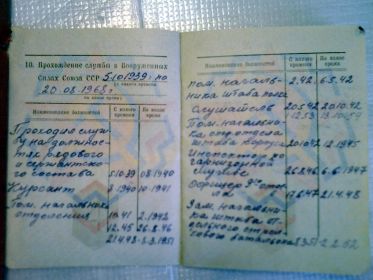 10. Прохождение службы в Вооруженных
Силах Союза ССР 5.10.1939г. по
20.08.1968г.
Наименование должностей
С какого времени
По какое время
Проходил служ-
бу на должнос-
тях рядового
и сержантско-
го состава 5.10.39 08.1940
Курсант 8.1940 10.1941
Пом. начальника
отделения 10.41 2.1942
12.45 26.8.46
21.4.48 8.3.1951
Наименование должностей
С какого времени
По какое время
Пом. началь-
ника штаба полка 2.42 6.5.42
Слушатель 20.5.42 20.10.42
12.53 19.10.54
Пом. начальни-
ка отдела
штаба корпуса 20.10.42 12.1945
Инспектор по
гарнизонной
службе 26.8.46 6.6.1947
Офицер
17.6.47 21.4.48
Зам. начальни-
ка штаба от-
дельного
батальона 8.3.51 2.2.52